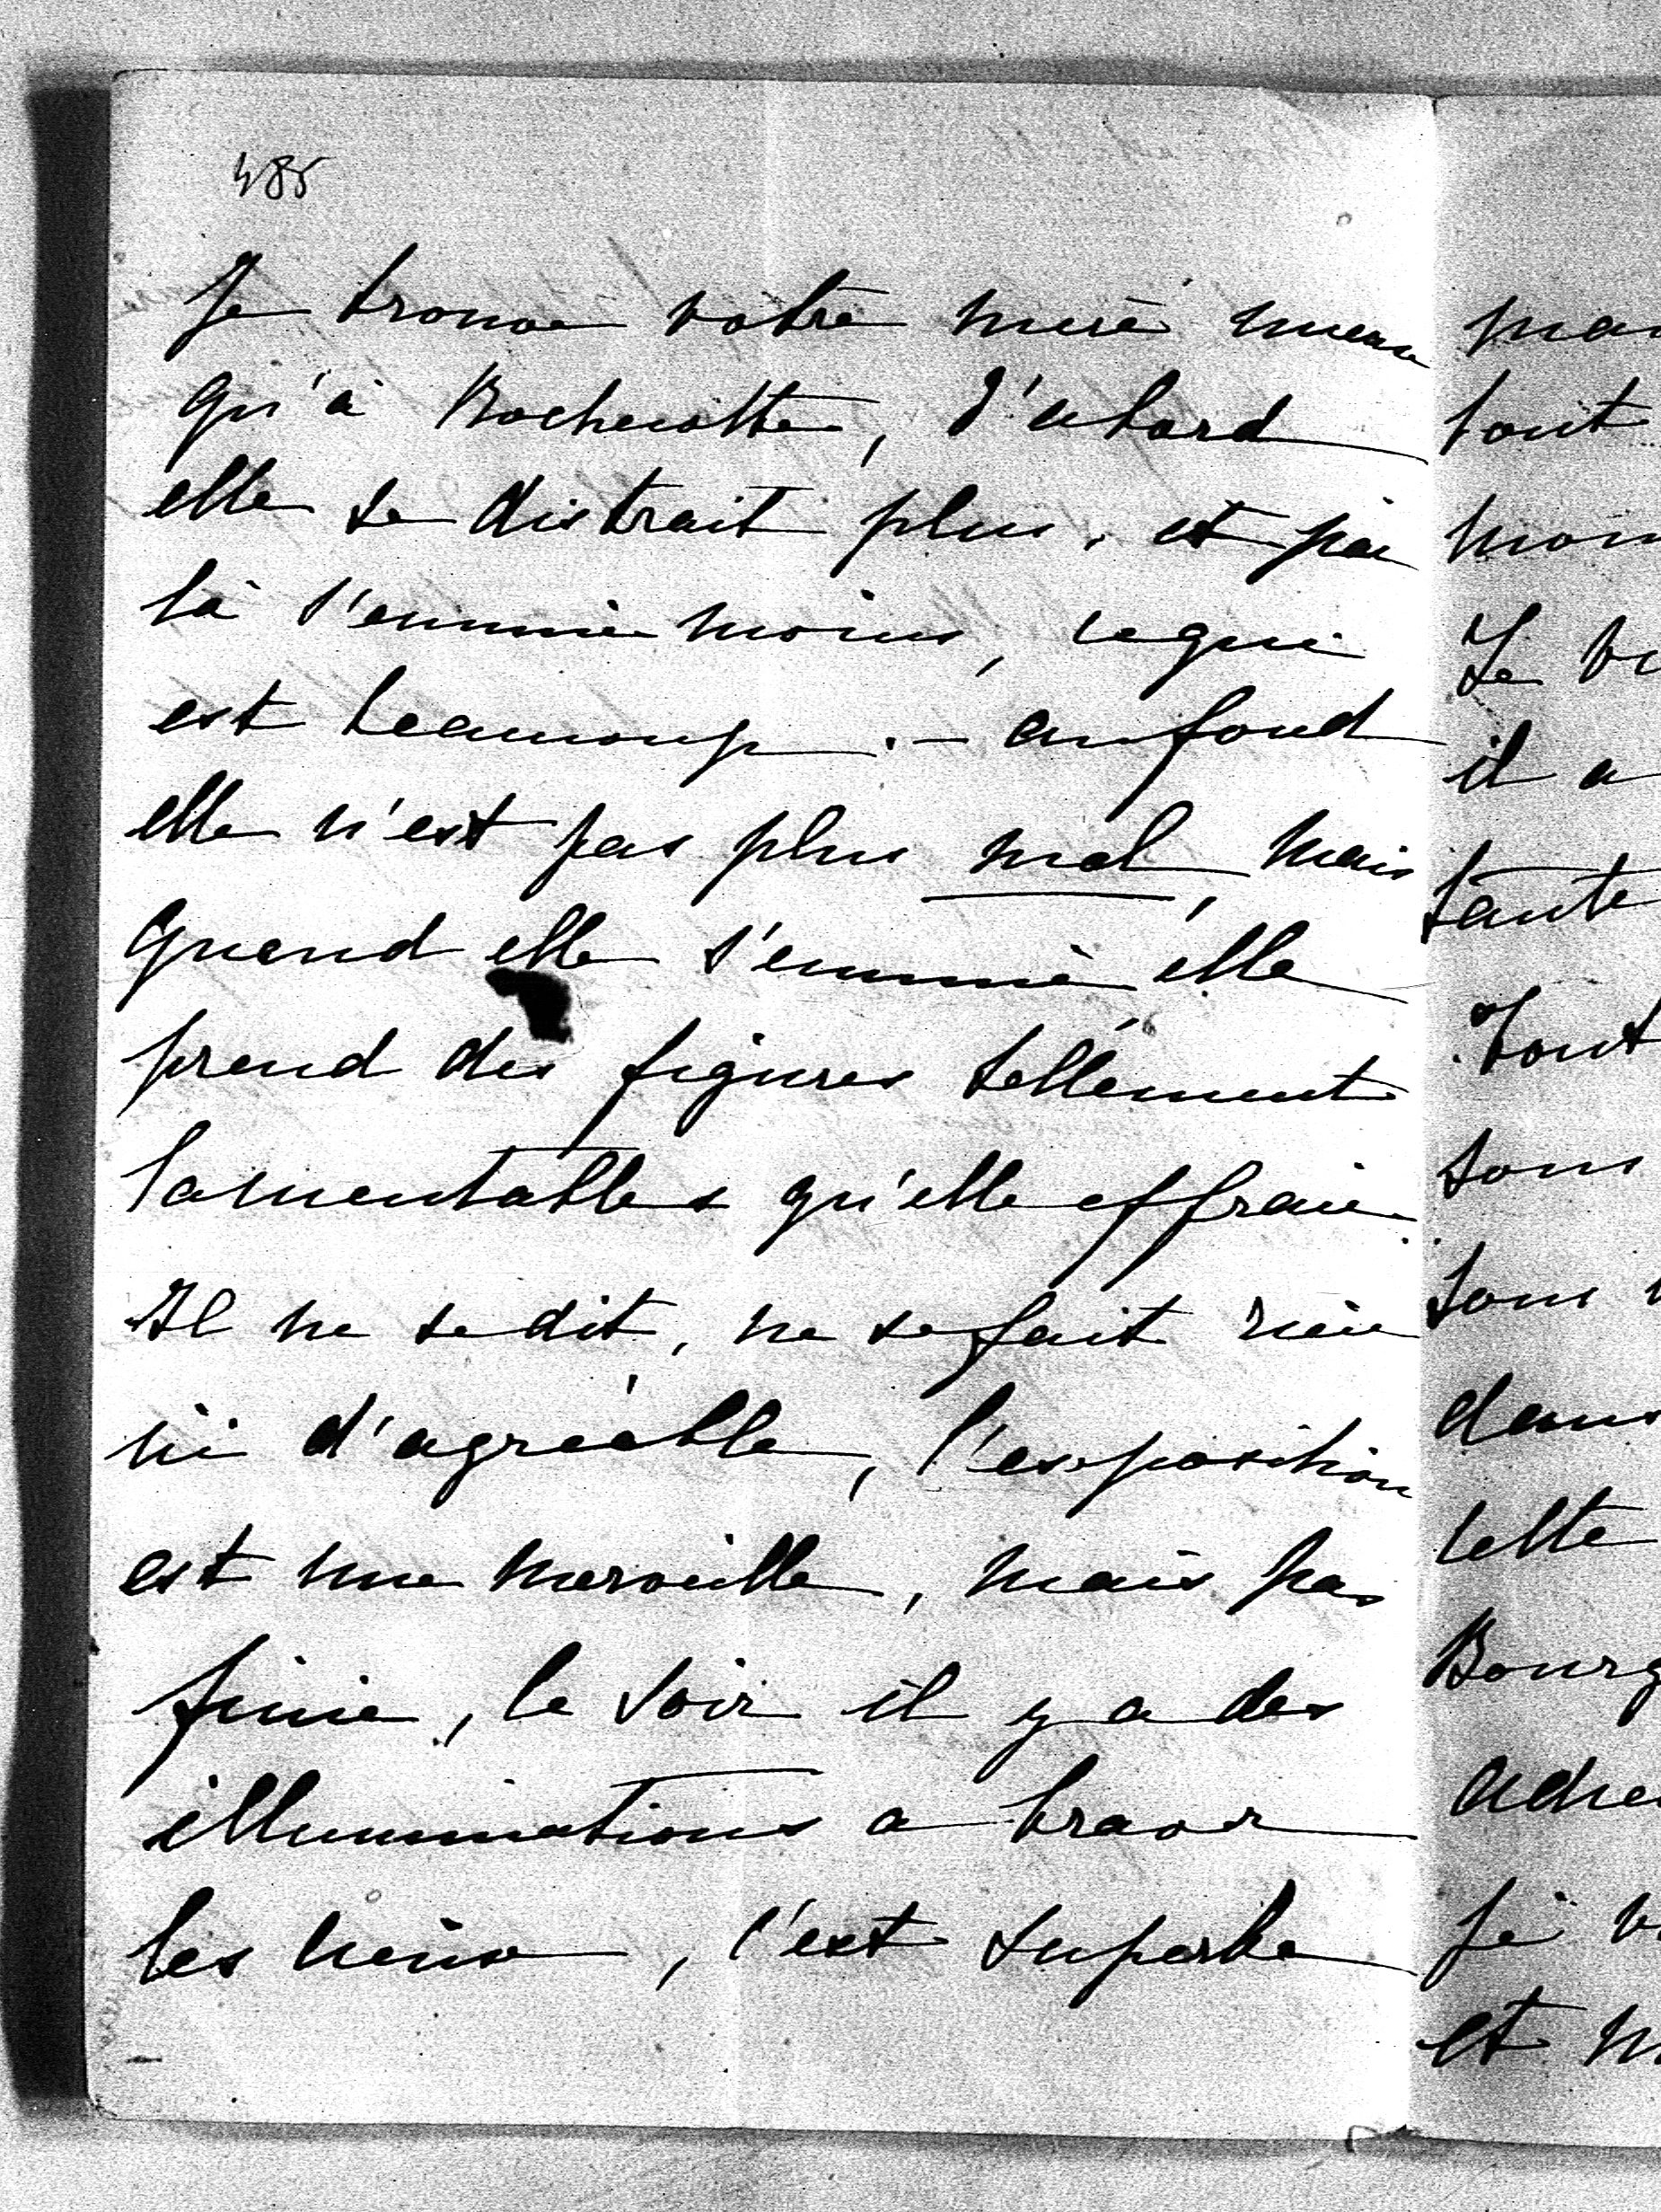 485
Je trouve votre mère mieux
qu'à Rochecotte, d'abord
elle se distrait plus, et par
là s'ennuie moins, ce qui
est beaucoup. – au fond
elle n'est pas plus mal, mais
quand elle s'ennuie elle
prend des figures tellement
lamentables qu'elle effraie.
Il ne se dit, ne se fait rien
ici d'agréable, l'exposition
est une merveille, mais pas
finie, le soir il y a des
illuminations a travers
les , c'est superbe
tout
il a
tante
tout
sous
dans
cette
et